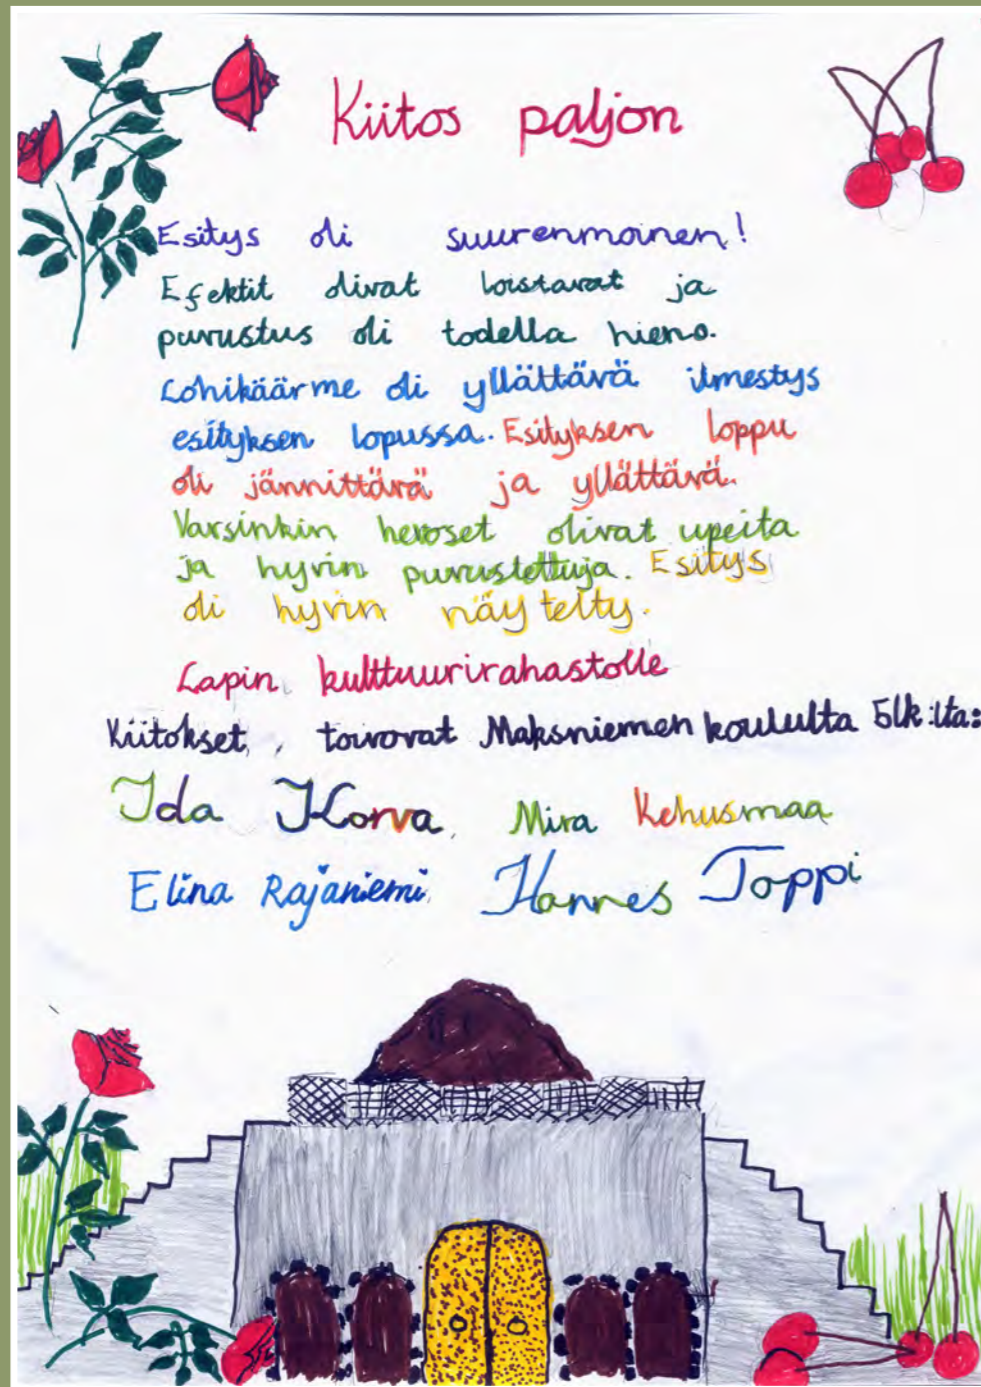 Kiitos paljon
Esitys oli suurenmoinen!
Efektit olivat loistavat ja
puvustus oli todella hieno.
Lohikäärme oli yllättävä ilmestys
esityksen lopussa. Esityksen loppu
oli jännittävä ja yllättävä.
Varsinkin hevoset olivat upeita
ja hyvin puvustettuja. Esitys
oli hyvin näytelty.
Lapin kulttuurirahastolle
Kiitokset, toivovat Maksniemen koululta 5lk:lta:
Ida Korva, Mira Kehusmaa
Elina Rajaniemi, Hannes Toppi